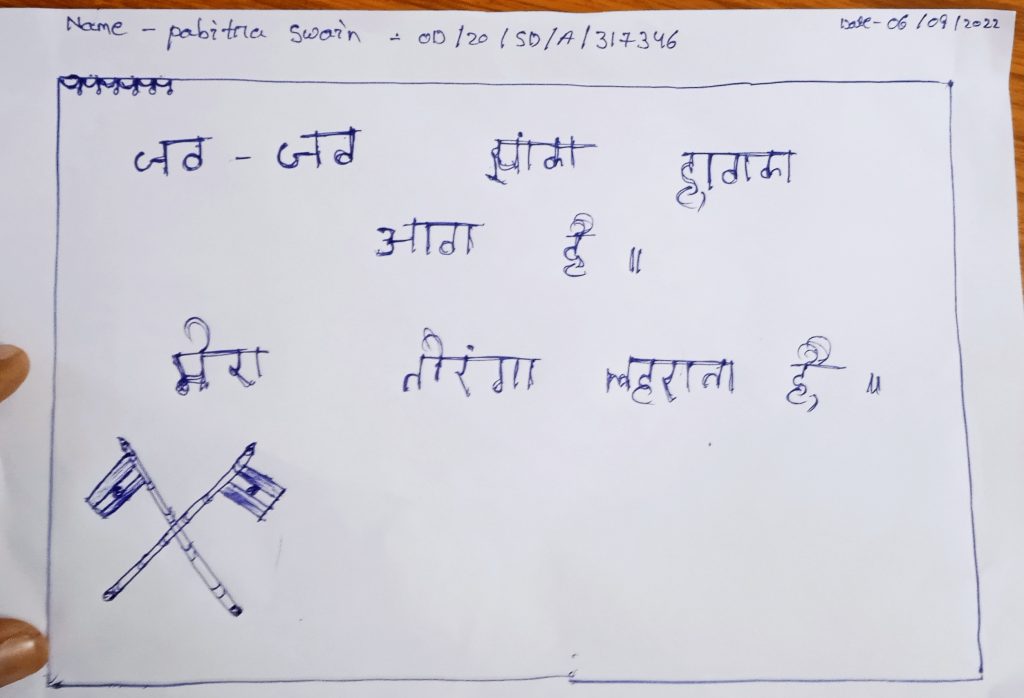 Name - pabitra swain - OD/20/SD/A/317346
Date- 06/09/2022
जव - जव झांका हावाका
आता है ॥
मेरा तीरंगा लहराता है ॥